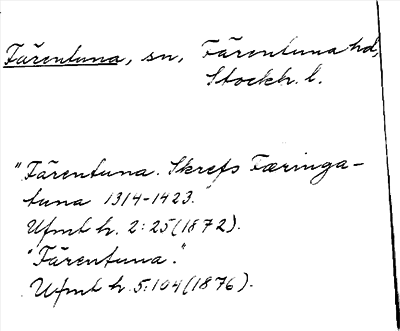 Färentuna, sn, Färentuna hd,
Stockh. l.
"Färentuna. Skrefs Færinga-
tuna 1314-1423.
Ufmt h. 2:25(1872).
"Färentuna."
Ufmt h. 5:104(1876).